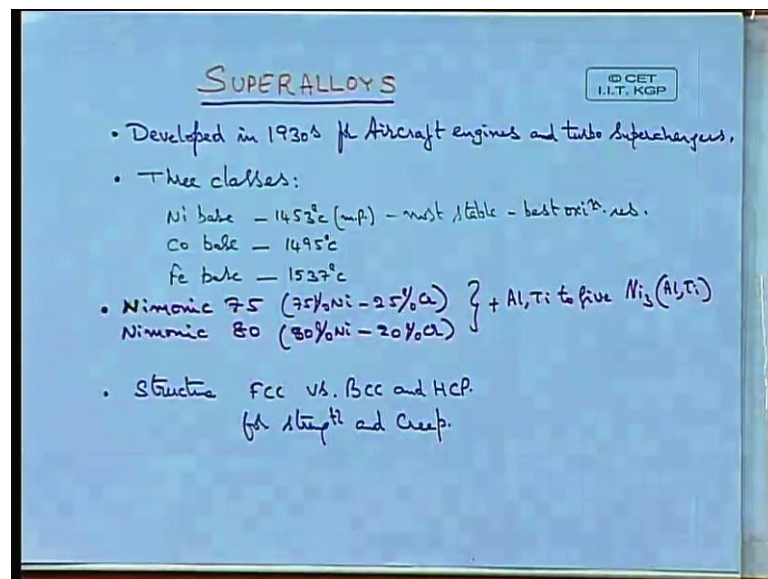 SUPERALLOYS
© CET
I.I.T. KGP
• Developed in 1930s for Aircraft engines and turbo superchargers.
• Three classes:
Ni base – 1453°c (m.p.) – most stable – best oxiⁿ. res.
Co base – 1495°c
Fe base – 1537°c
• Nimonic 75 (75%Ni – 25%Cr) } + Al, Ti to give Ni₃(Al,Ti)
Nimonic 80 (80%Ni – 20%Cr)
• Structure FCC vs. BCC and HCP.
for strength and Creep.